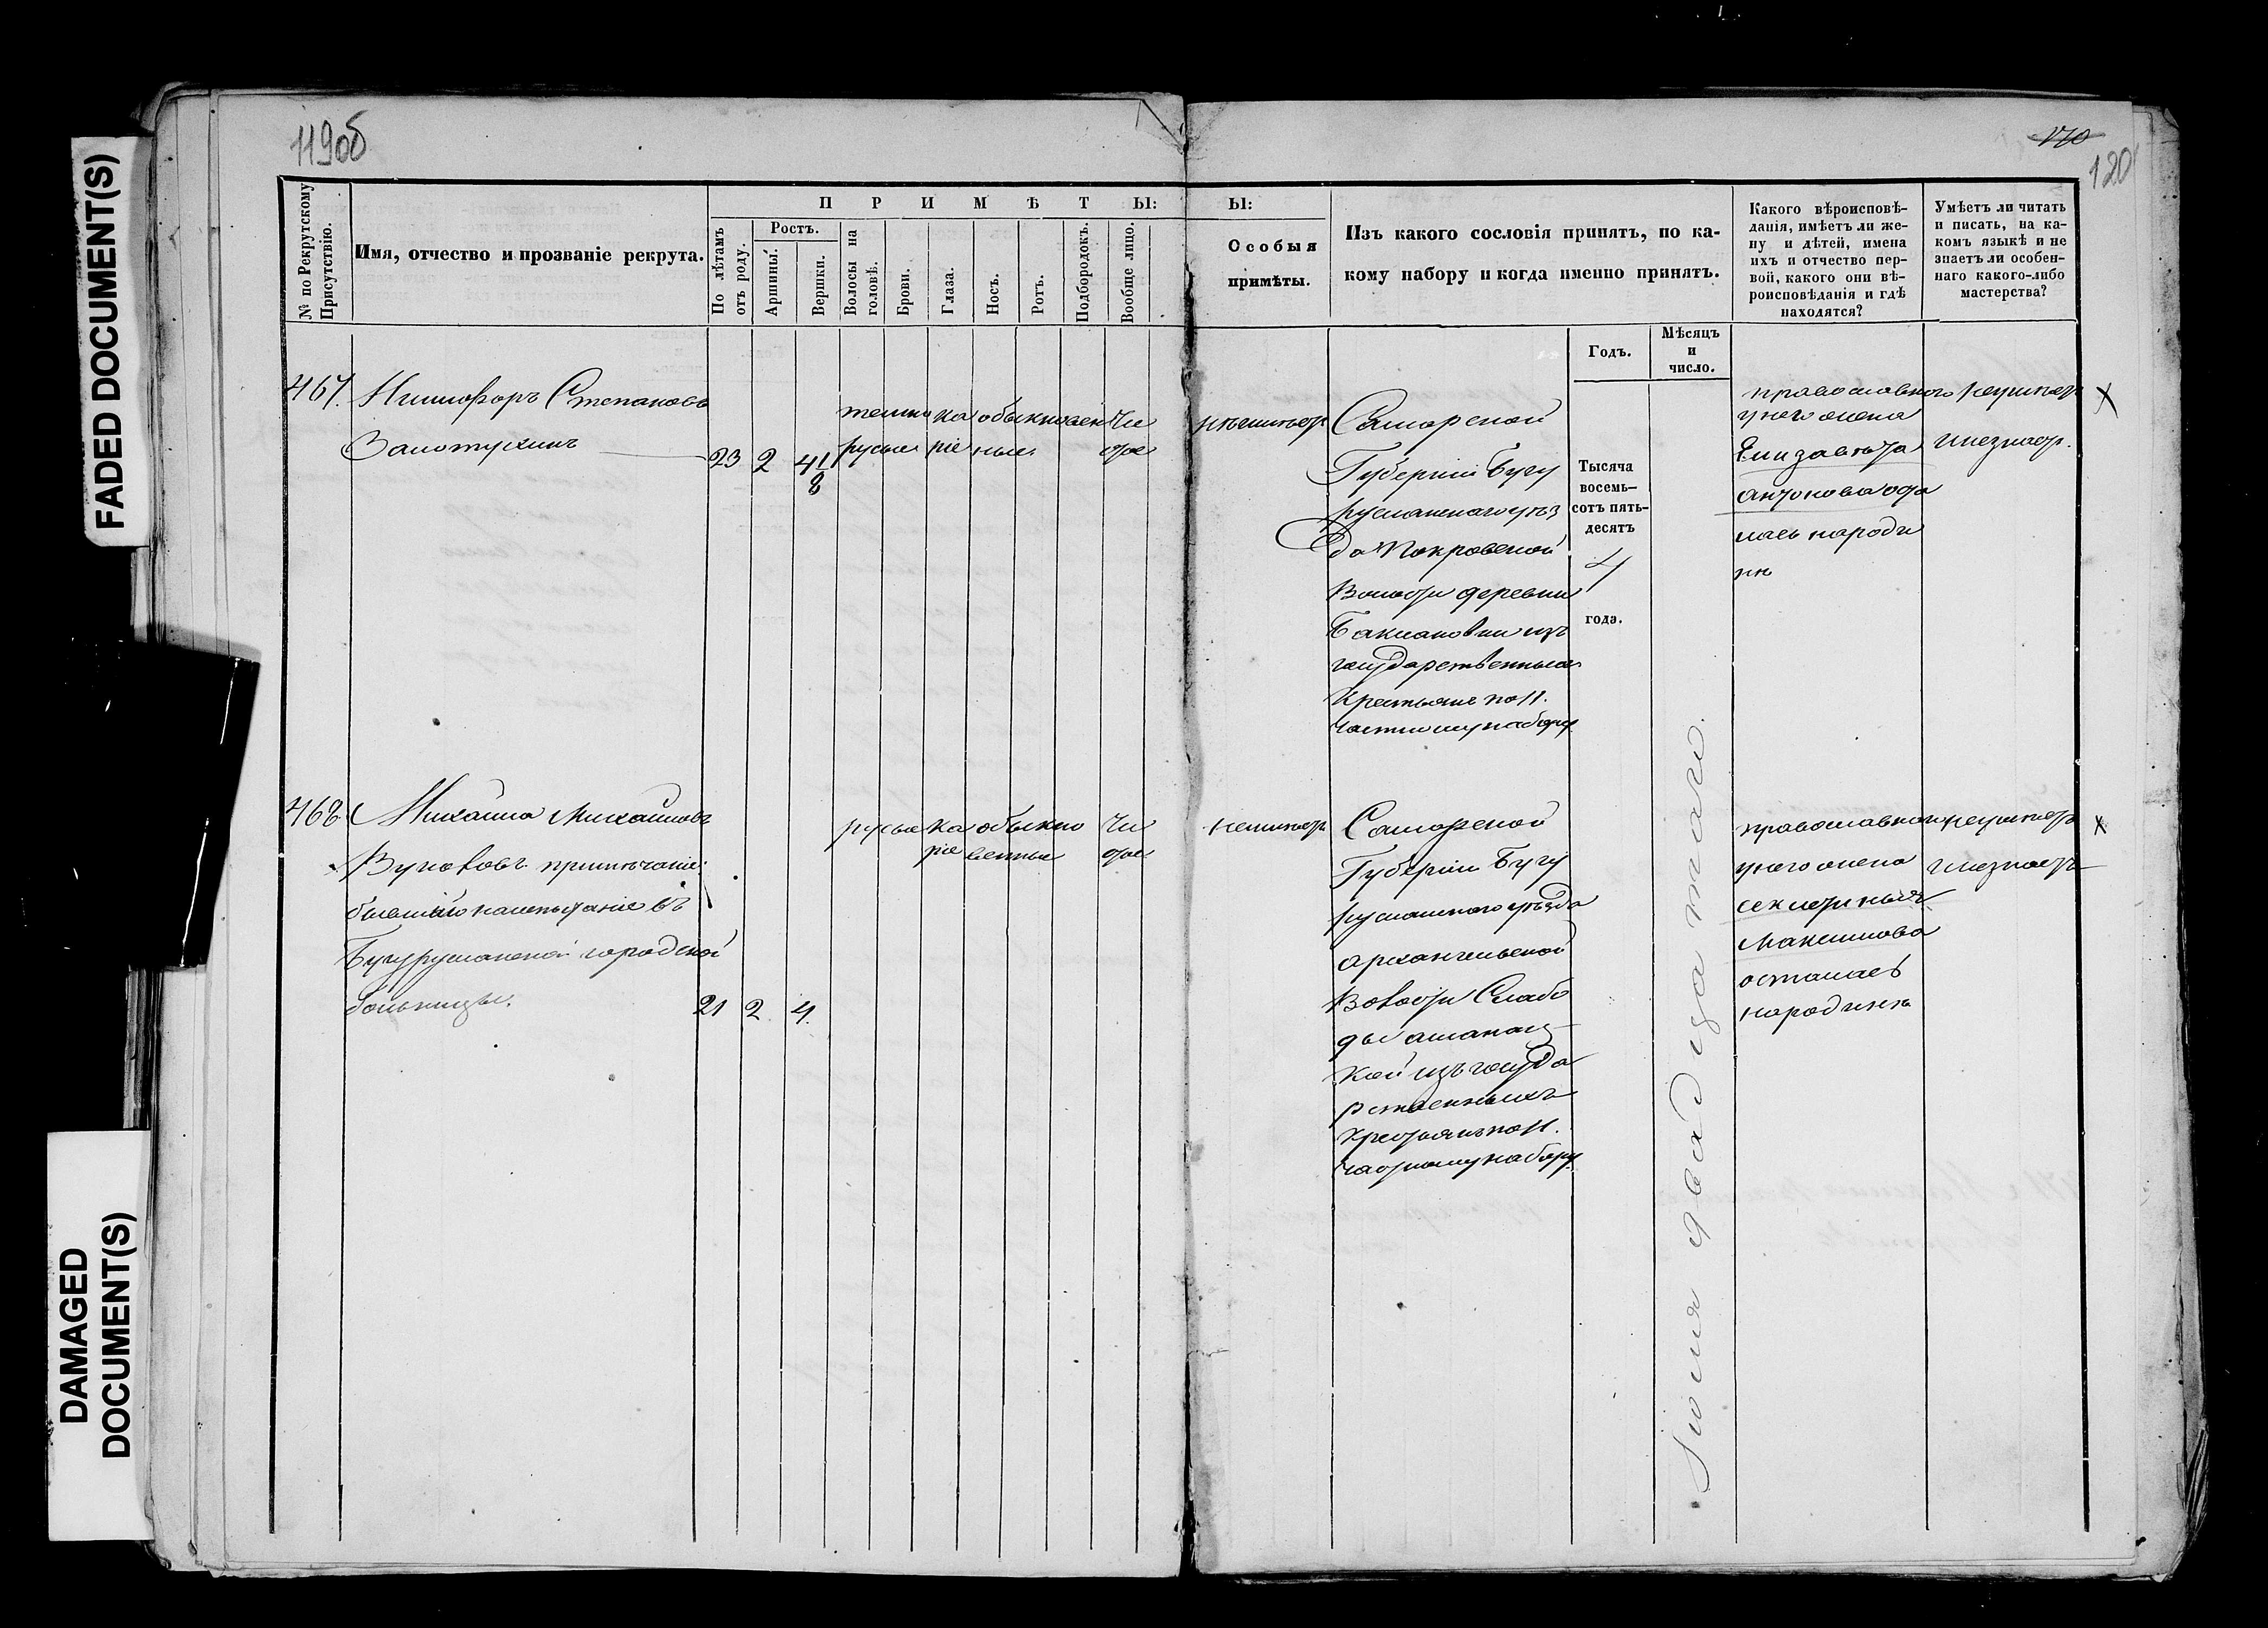 119об
170
120
FADED DOCUMENT(S)
DAMAGED
DOCUMENT(S)
№ по Рекрутскому
Присутствію.
Имя, отчество и прозваніе рекрута.
П Р И М Ѣ Т Ы:
По лѣтамъ
отъ роду.
Ростъ.
Аршины.
Вершки.
Волосы на
головѣ.
Брови.
Глаза.
Носъ.
Ротъ.
Подбородокъ.
Вообще лицо.
Ы:
Особыя
примѣты.
Изъ какого сословія принятъ, по ка-
кому набору и когда именно принятъ.
Годъ.
Мѣсяцъ
и
число.
Какого вѣроисповѣ-
данія, имѣетъ ли же-
ну и дѣтей, имена
ихъ и отчество пер-
вой, какого они вѣ-
роисповѣданія и гдѣ
находятся?
Умѣетъ ли читать
и писать, на ка-
комъ языкѣ и не
знаетъ ли особен-
наго какого-либо
мастерства?
467. Никифоръ Степановъ
23 2 4 1/8
темно ка обыкновен чи
русые ріе ные стое
неимѣетъ
Самарской
Губерніи Бугу
русланскаго уѣз
да Покровской
Волости деревни
изъ
государственныхъ
крестьянъ по 11.
частному набору
Тысяча
восемь-
сотъ пять-
десятъ
4
года.
Іюня двадцатаго.
православнаго
у него жена
Елизавета
Антонова оста
лась народи
нѣ
неумѣетъ
и незнаетъ.
468 Михаила Михайловъ
примѣчаніе:
въ
Бугурусланской городской
больницы.
21 2 4.
русые ка обыкно чи
ріе венные стое
неимѣетъ
Самарской
Губерніи Бугу
русланскаго уѣзда
Архангельской
Волости Слабо
ды
кой изъ госуда
рственныхъ
крестьянъ по 11.
частному набору
православнаго
у него жена
Максимова
осталась
народинѣ
неумѣетъ
и незнаетъ